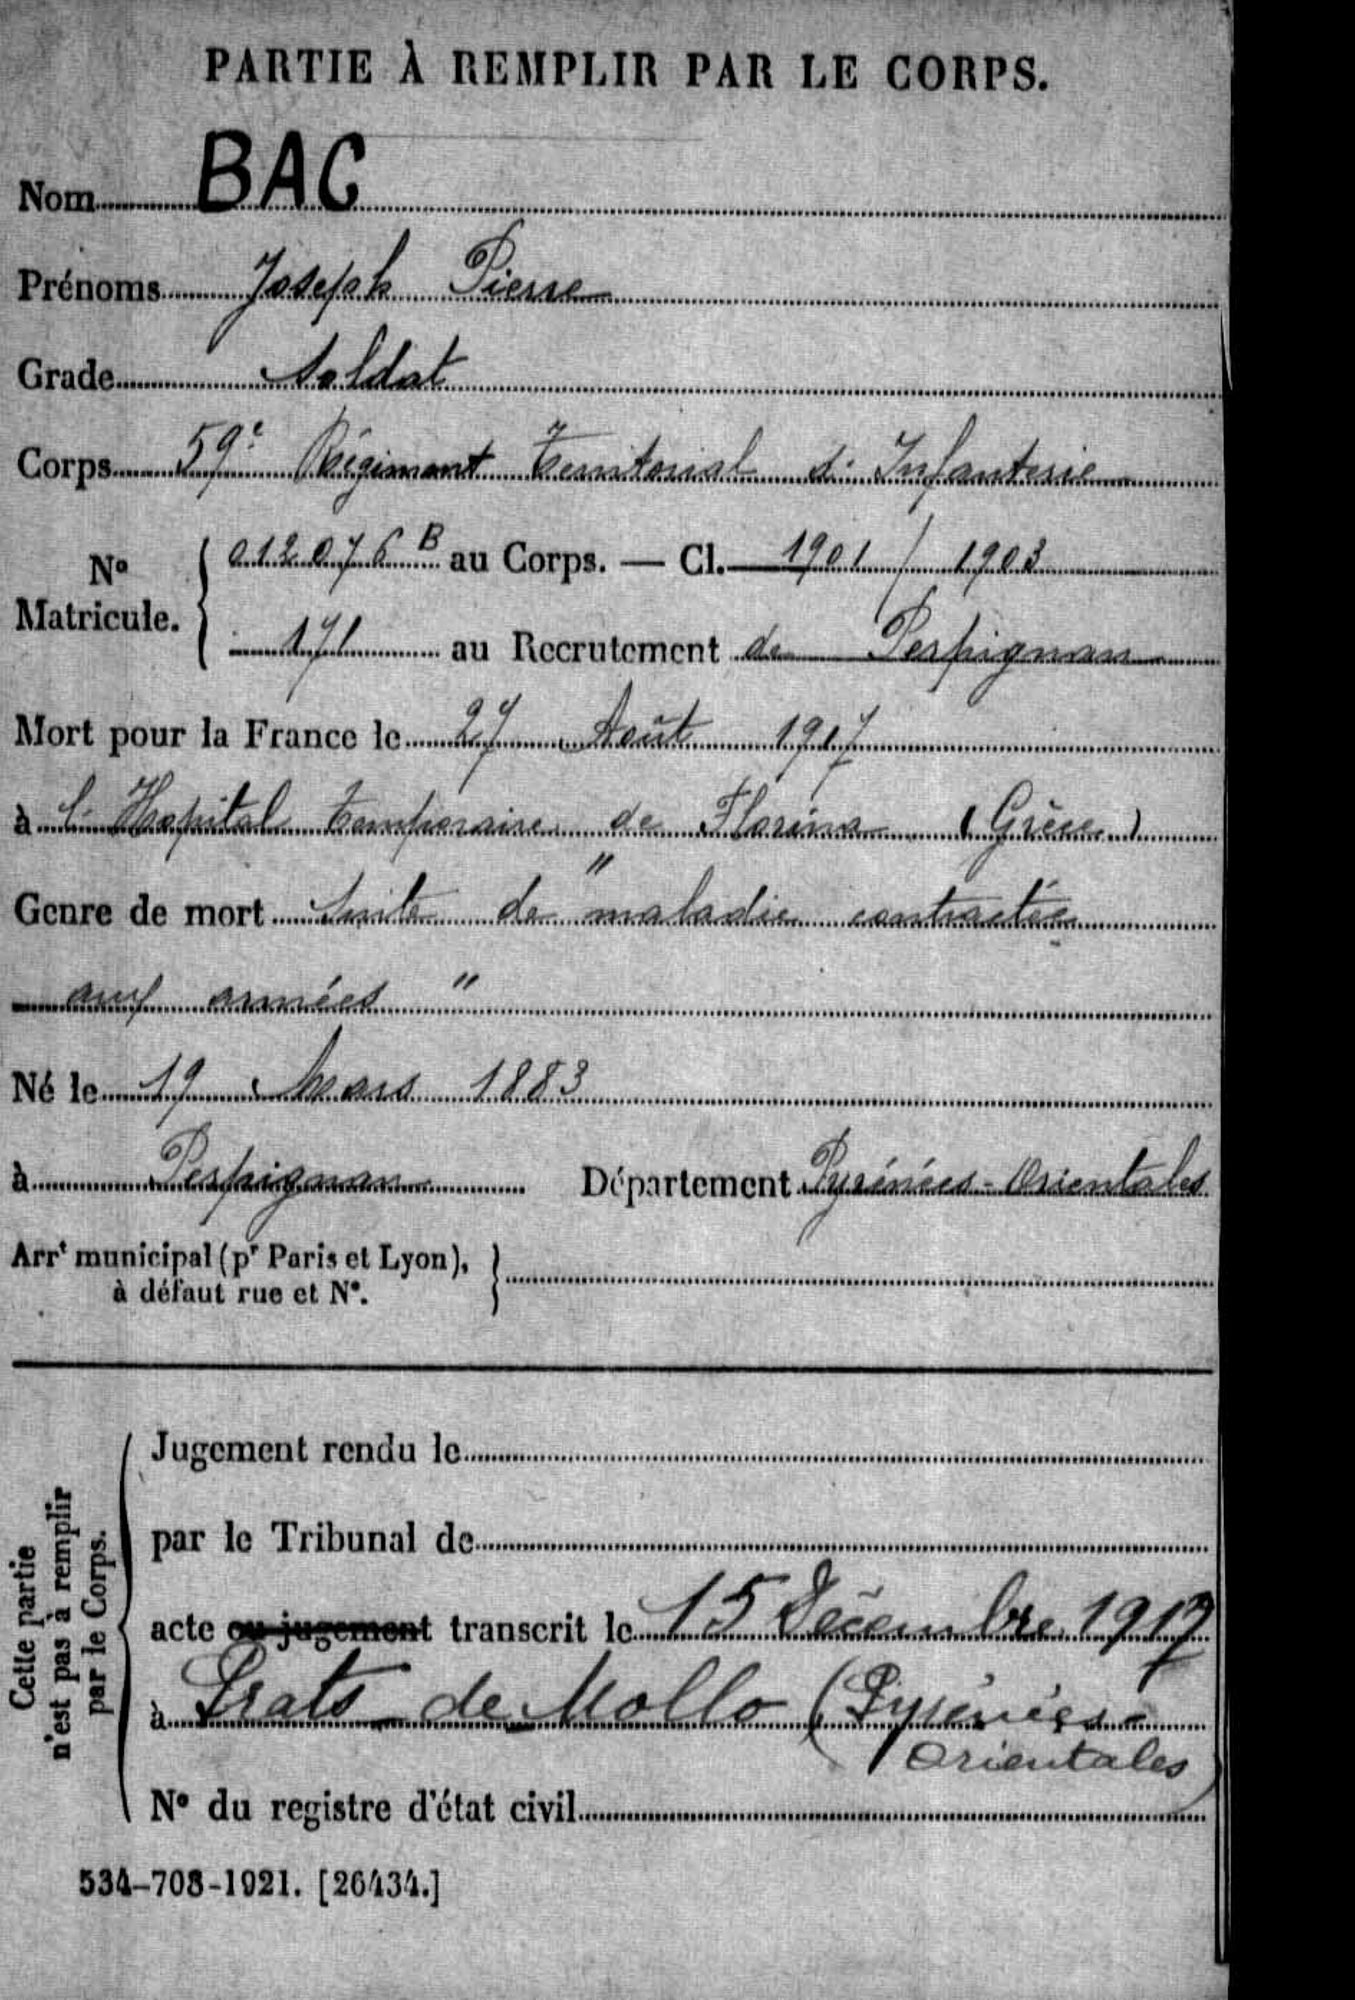 PARTIE À REMPLIR PAR LE CORPS.
Nom BAC
Prénoms Joseph Pierre
Grade Soldat
Corps 59e Régiment Territorial d'Infanterie
No Matricule. 012076 B au Corps. — Cl. 1901 / 1903
171 au Recrutement de Perpignan
Mort pour la France le 27 Août 1917
à l'Hopital temporaire de Florina (Grèce)
Genre de mort Suite de "maladie contractée
aux armées"
Né le 19 Mars 1883
à Perpignan Département Pyrénées-Orientales
Arrt municipal (pr Paris et Lyon),
à défaut rue et No.
Cette partie
n'est pas à remplir
par le Corps.
Jugement rendu le
par le Tribunal de
acte ou jugement transcrit le 15 Décembre 1917
à Prats-de-Mollo (Pyrénées-
Orientales)
No du registre d'état civil
534-708-1921. [26434.]